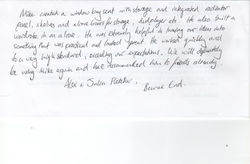 Mike created a window bay seat with storage and integrated radiator
panel, shelves and alcove for storage, display etc. He also built a
wardrobe in an alcove. He was extremely helpful in turning our ideas into
something that was practical and looked great. He worked quickly and
to a very high standard, exceeding our expectations. We will definitely
be using Mike again and have recommended him to friends already.
Alex + Simon
Bourne End.